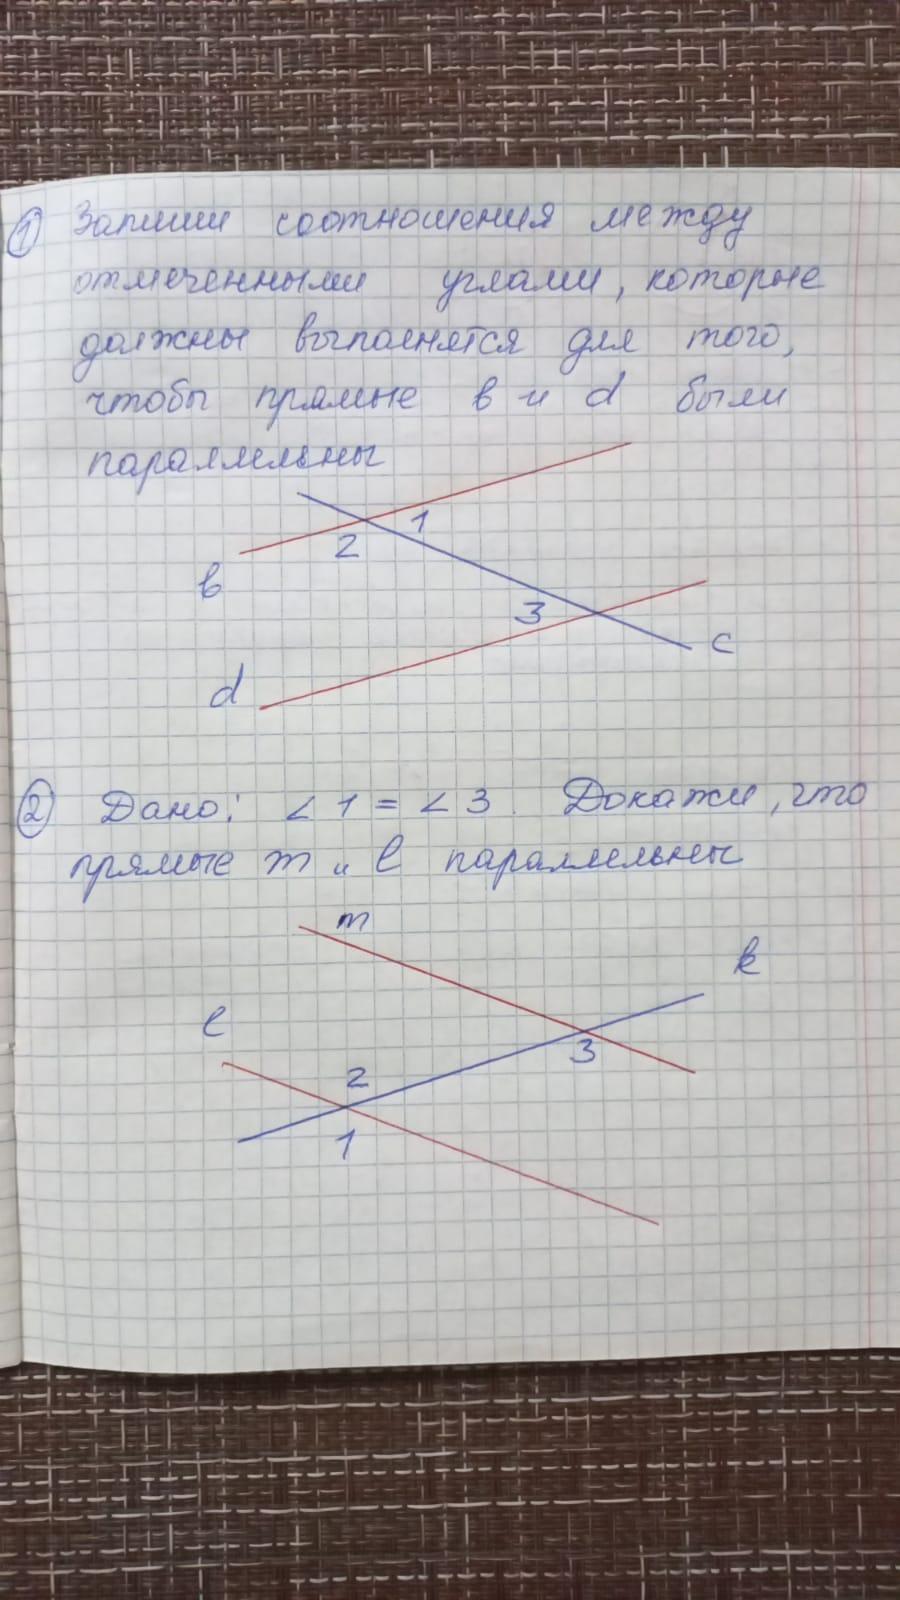 ① Запиши соотношения между
отмеченными углами, которые
должны выполнятся для того,
чтобы прямые в и d были
параллельны
1
2
в
3
c
d
② Дано: ∠1 = ∠3. Докажи, что
прямые m и l параллельны
m
k
l
3
2
1